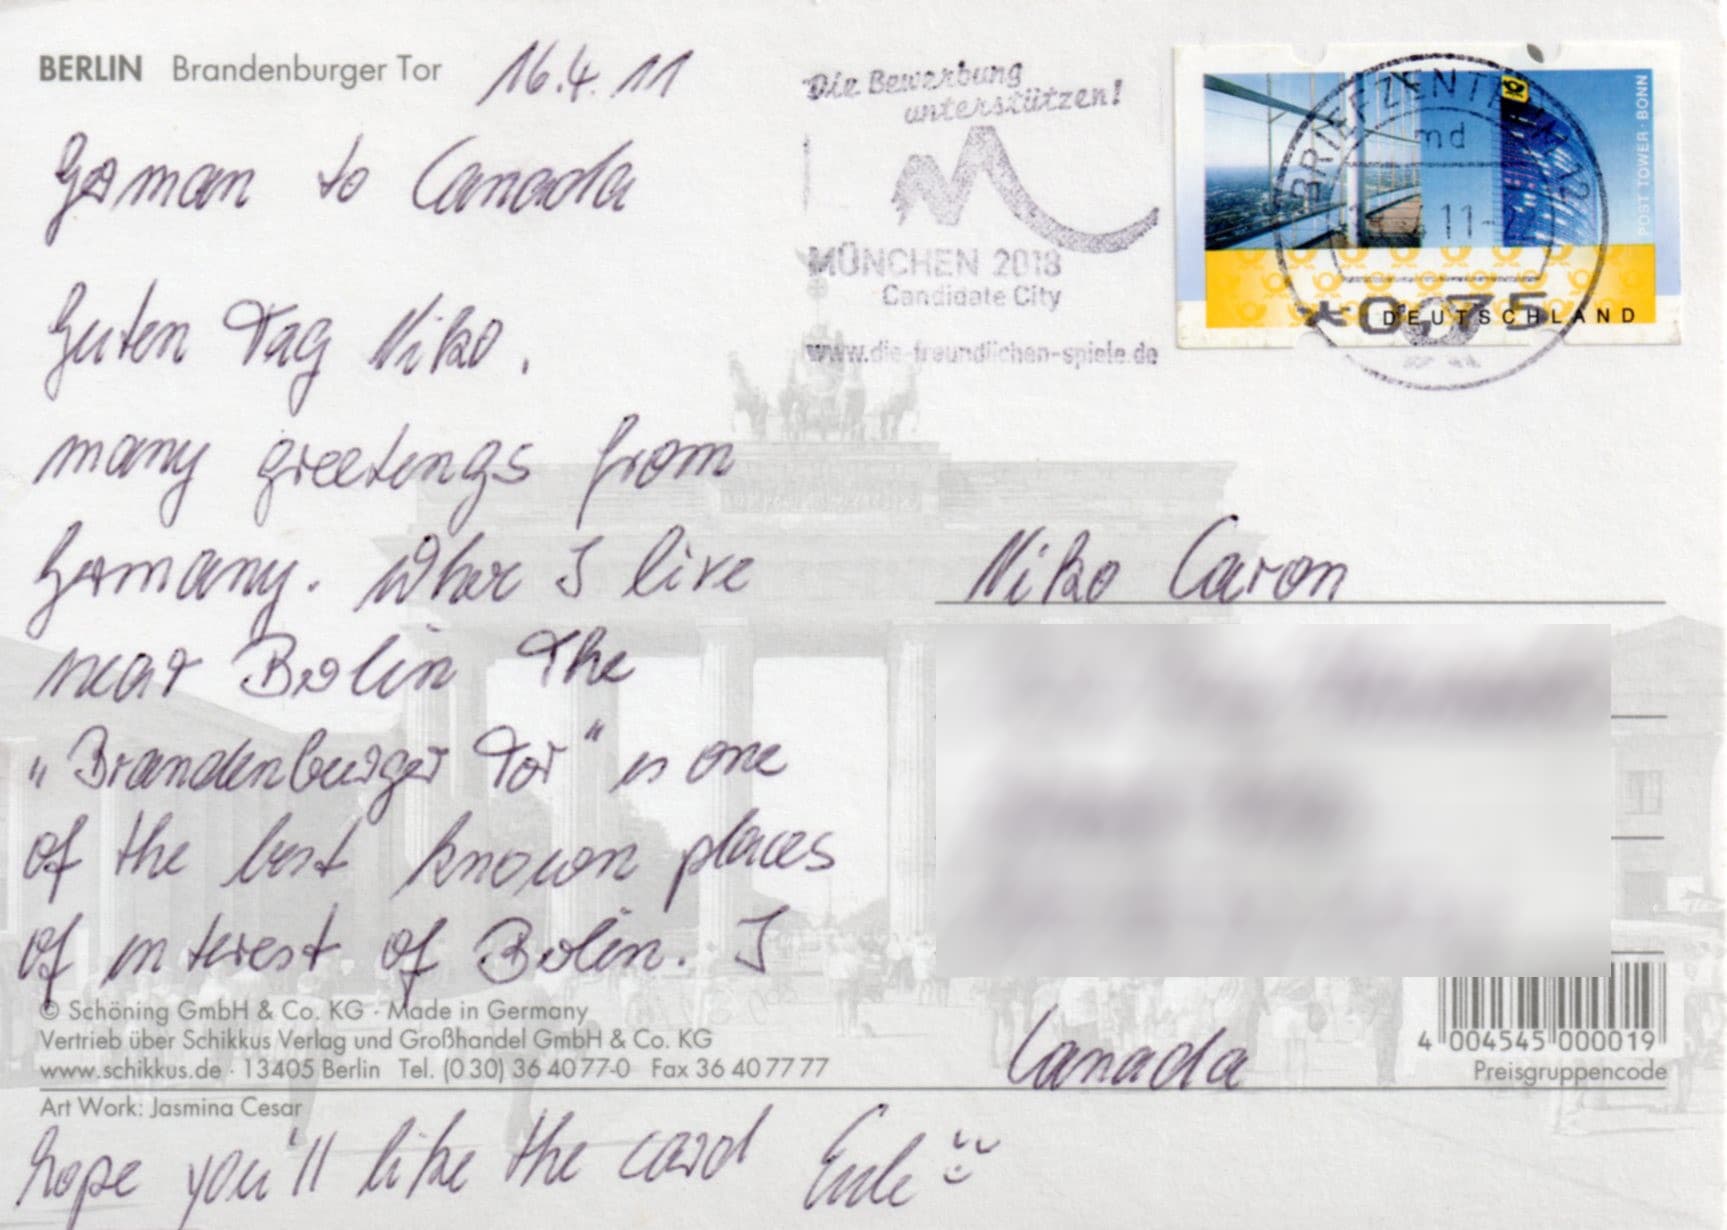 BERLIN Brandenburger Tor
16.4.11
German to Canada
Guten Tag Niko,
many greetings from
Germany. Wher I live
near Berlin The
„Brandenburger Tor" is one
of the best known places
of interest of Berlin. I
© Schöning GmbH & Co. KG · Made in Germany
Vertrieb über Schikkus Verlag und Großhandel GmbH & Co. KG
www.schikkus.de · 13405 Berlin Tel. (0 30) 36 40 77-0 Fax 36 40 77 77
Art Work: Jasmina Cesar
hope you'll like the card Eule
Die Bewerbung
unterstützen!
MÜNCHEN 2018
Candidate City
www.die-freundlichen-spiele.de
BRIEFZENTRUM
md
11
POST TOWER · BONN
*0,75
DEUTSCHLAND
Niko Caron
Canada
4 004545 000019
Preisgruppencode